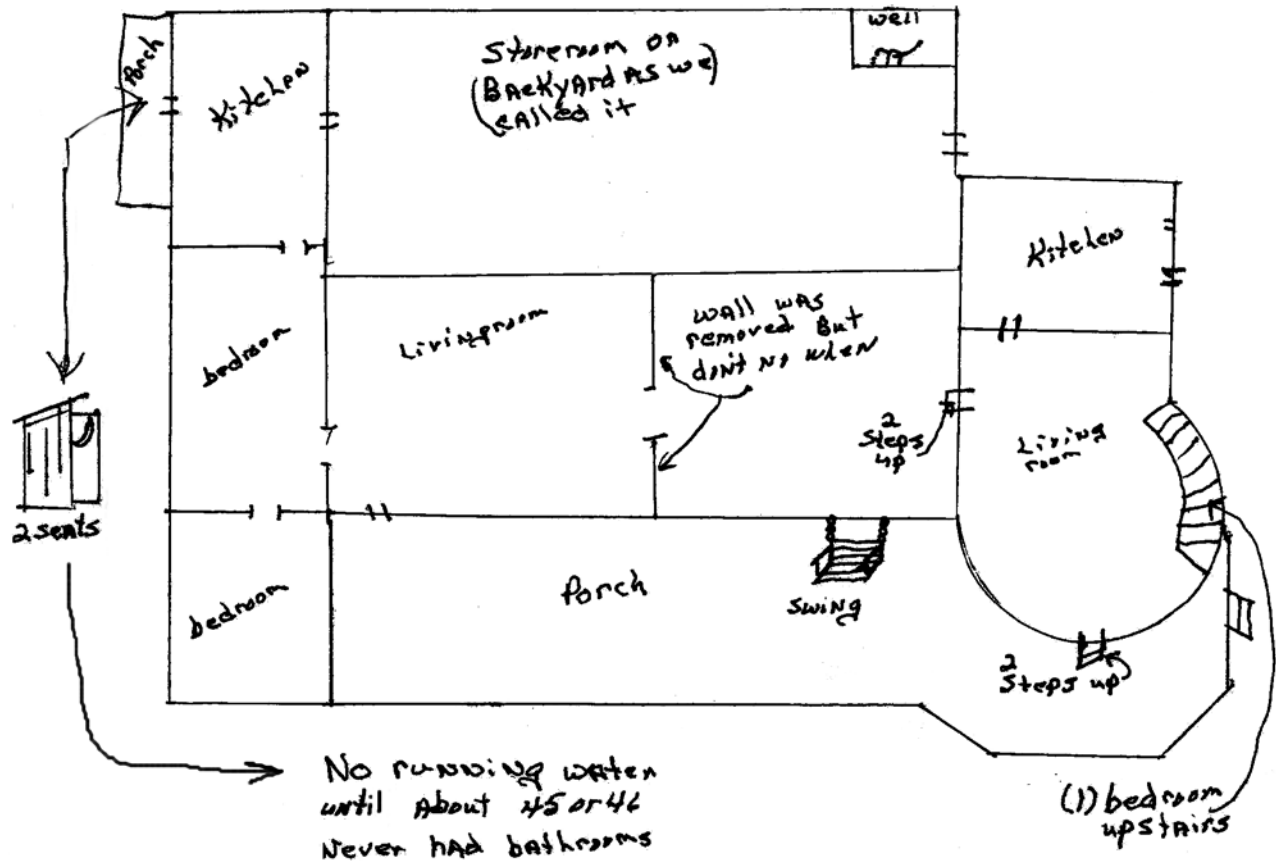 well
Porch
Kitchen
Storeroom or
(BackyArd As we)
cAlled it
Kitchen
bedroom
Livingroom
wAll wAs
removed But
don't no when
2
Steps
up
Living
room
2 seats
bedroom
Porch
swing
2
Steps up
No running water
until About 45 or 46
Never hAd bAthrooms
(1) bedroom
upstAirs